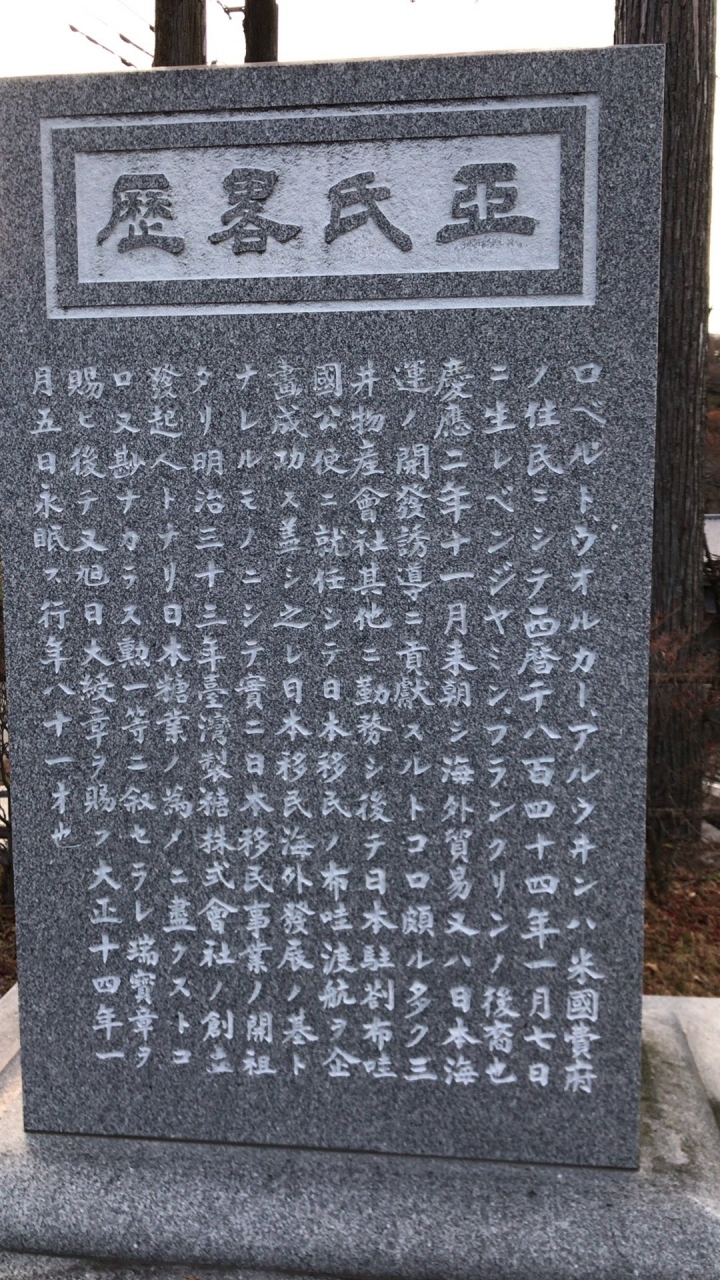 亞氏畧歷
ロベルト、ウオルカー、アルウヰンハ米國費府
ノ住民ニシテ西暦千八百四十四年一月七日
ニ生レベンジヤミン、フランクリンノ後裔也
慶應二年十一月来朝シ海外貿易又ハ日本海
運ノ開發誘導ニ貢獻スルトコロ頗ル多ク三
井物産會社其他ニ勤務シ後チ日本駐剳布哇
國公使ニ就任シテ日本移民ノ布哇渡航ヲ企
畫成功ス蓋シ之レ日本移民海外發展ノ基ト
ナレルモノニシテ實ニ日本移民事業ノ開祖
タリ明治三十三年臺灣製糖株式會社ノ創立
發起人トナリ日本糖業ノ為メニ盡クストコ
ロ又尠ナカラス勲一等ニ叙セラレ瑞寳章ヲ
賜ヒ後チ又旭日大綬章ヲ賜フ大正十四年一
月五日永眠ス行年八十一才也